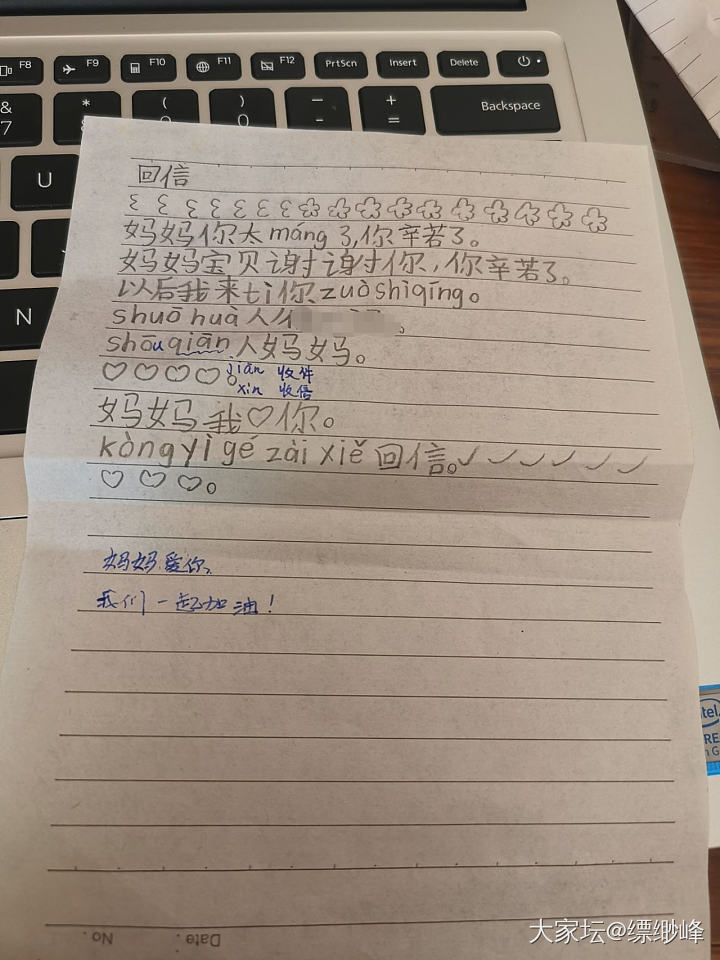 F8
F9
F10
F11
F12
PrtScn
Insert
Delete
&
7
*
(
)
-
+
=
Backspace
U
N
回信
妈妈你太máng了,你辛若了。
妈妈宝贝谢谢你,你辛若了。
以后我来tì你zuòshìqīng。
shuō huà人
shōuqiān人妈妈。
jiàn 收件
xìn 收信
妈妈我♡你。
kòngyìgé zài xiě 回信。
妈妈爱你。
我们一起加油!
No.
Date.
intel
大家坛@缥缈峰